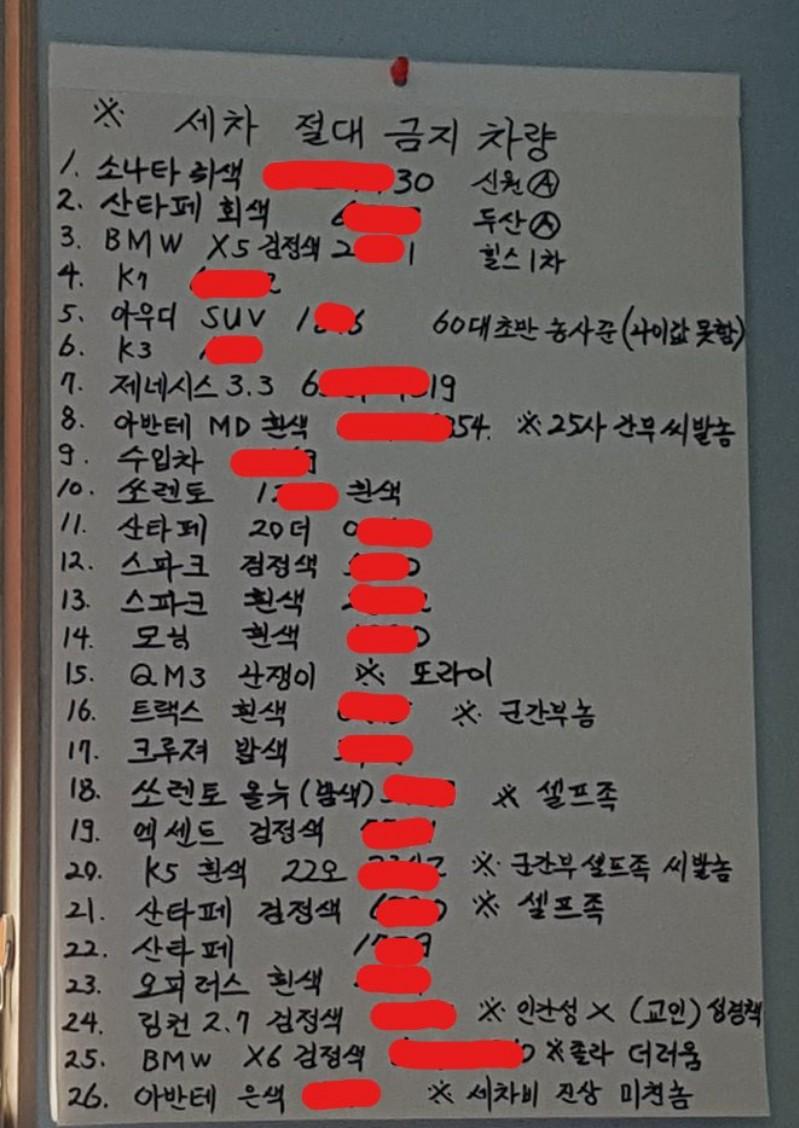 ※ 세차 절대 금지 차량
1. 소나타 회색 30 신원Ⓐ
2. 산타페 회색 6 두산Ⓐ
3. BMW X5 검정색 2 1 힐스 1차
4. K7
5. 아우디 SUV 1 6 60대초반 농사꾼 (나이값 못함)
6. K3
7. 제네시스 3.3 6 19
8. 아반테 MD 흰색 354. ※ 25사 간부 씨발놈
9. 수입차 9
10. 쏘렌토 12 흰색
11. 산타페 20더 0
12. 스파크 검정색 0
13. 스파크 흰색 2 2
14. 모닝 흰색 0
15. QM3 난쟁이 ※ 또라이
16. 트랙스 흰색 ※ 군간부놈
17. 크루져 밤색
18. 쏘렌토 올뉴 (밤색) ※ 셀프족
19. 엑센트 검정색
20. K5 흰색 22오 2 ※ 군간부 셀프족 씨발놈
21. 산타페 검정색 6 0 ※ 셀프족
22. 산타페 1 9
23. 오피러스 흰색
24. 링컨 2.7 검정색 ※ 인간성 X (교인) 성경책
25. BMW X6 검정색 0 ※ 졸라 더러움
26. 아반테 은색 ※ 세차비 진상 미친놈